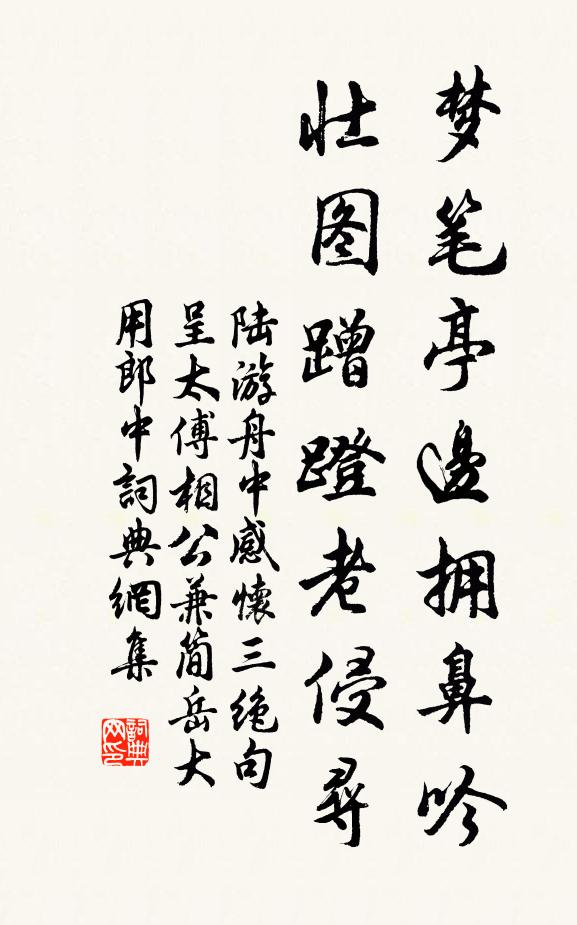 梦笔亭邊拥鼻吟
壮图蹭蹬老侵尋
陆游舟中感懷三绝句
呈太傅相公兼简岳大
用郎中詞典網集
詞典
网印